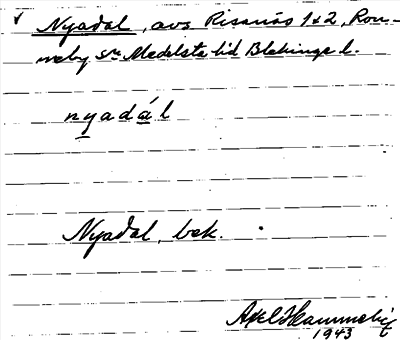 Nyadal, avs Risanäs 1&2, Ron-
neby sn Medelsta hd Blekinge l.
nyadál
Nyadal, bek.
Axel
1943